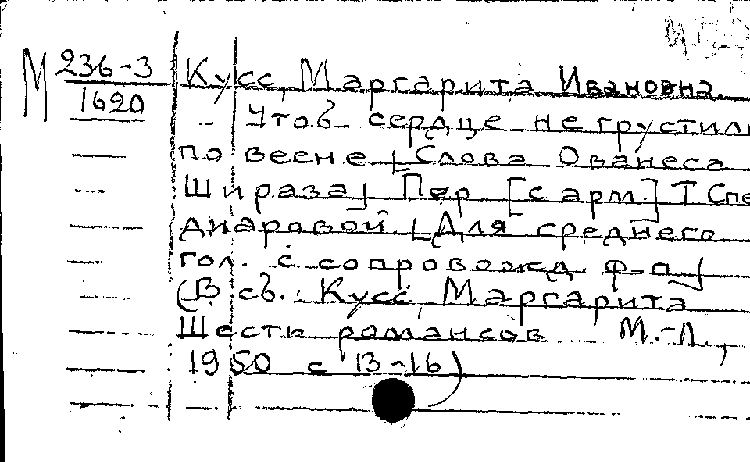 М 236-3 Кусс, Маргарита Ивановна.
1620 - Чтоб сердце не грустил
по весне [Слова Ованеса
Шираза] Пер [с арм.] Т Спе
диаровой [Для среднего
гол. с сопровожд ф-п]
(В сб.: Кусс, Маргарита
Шесть романсов М.-Л.,
1950 с 13-16)